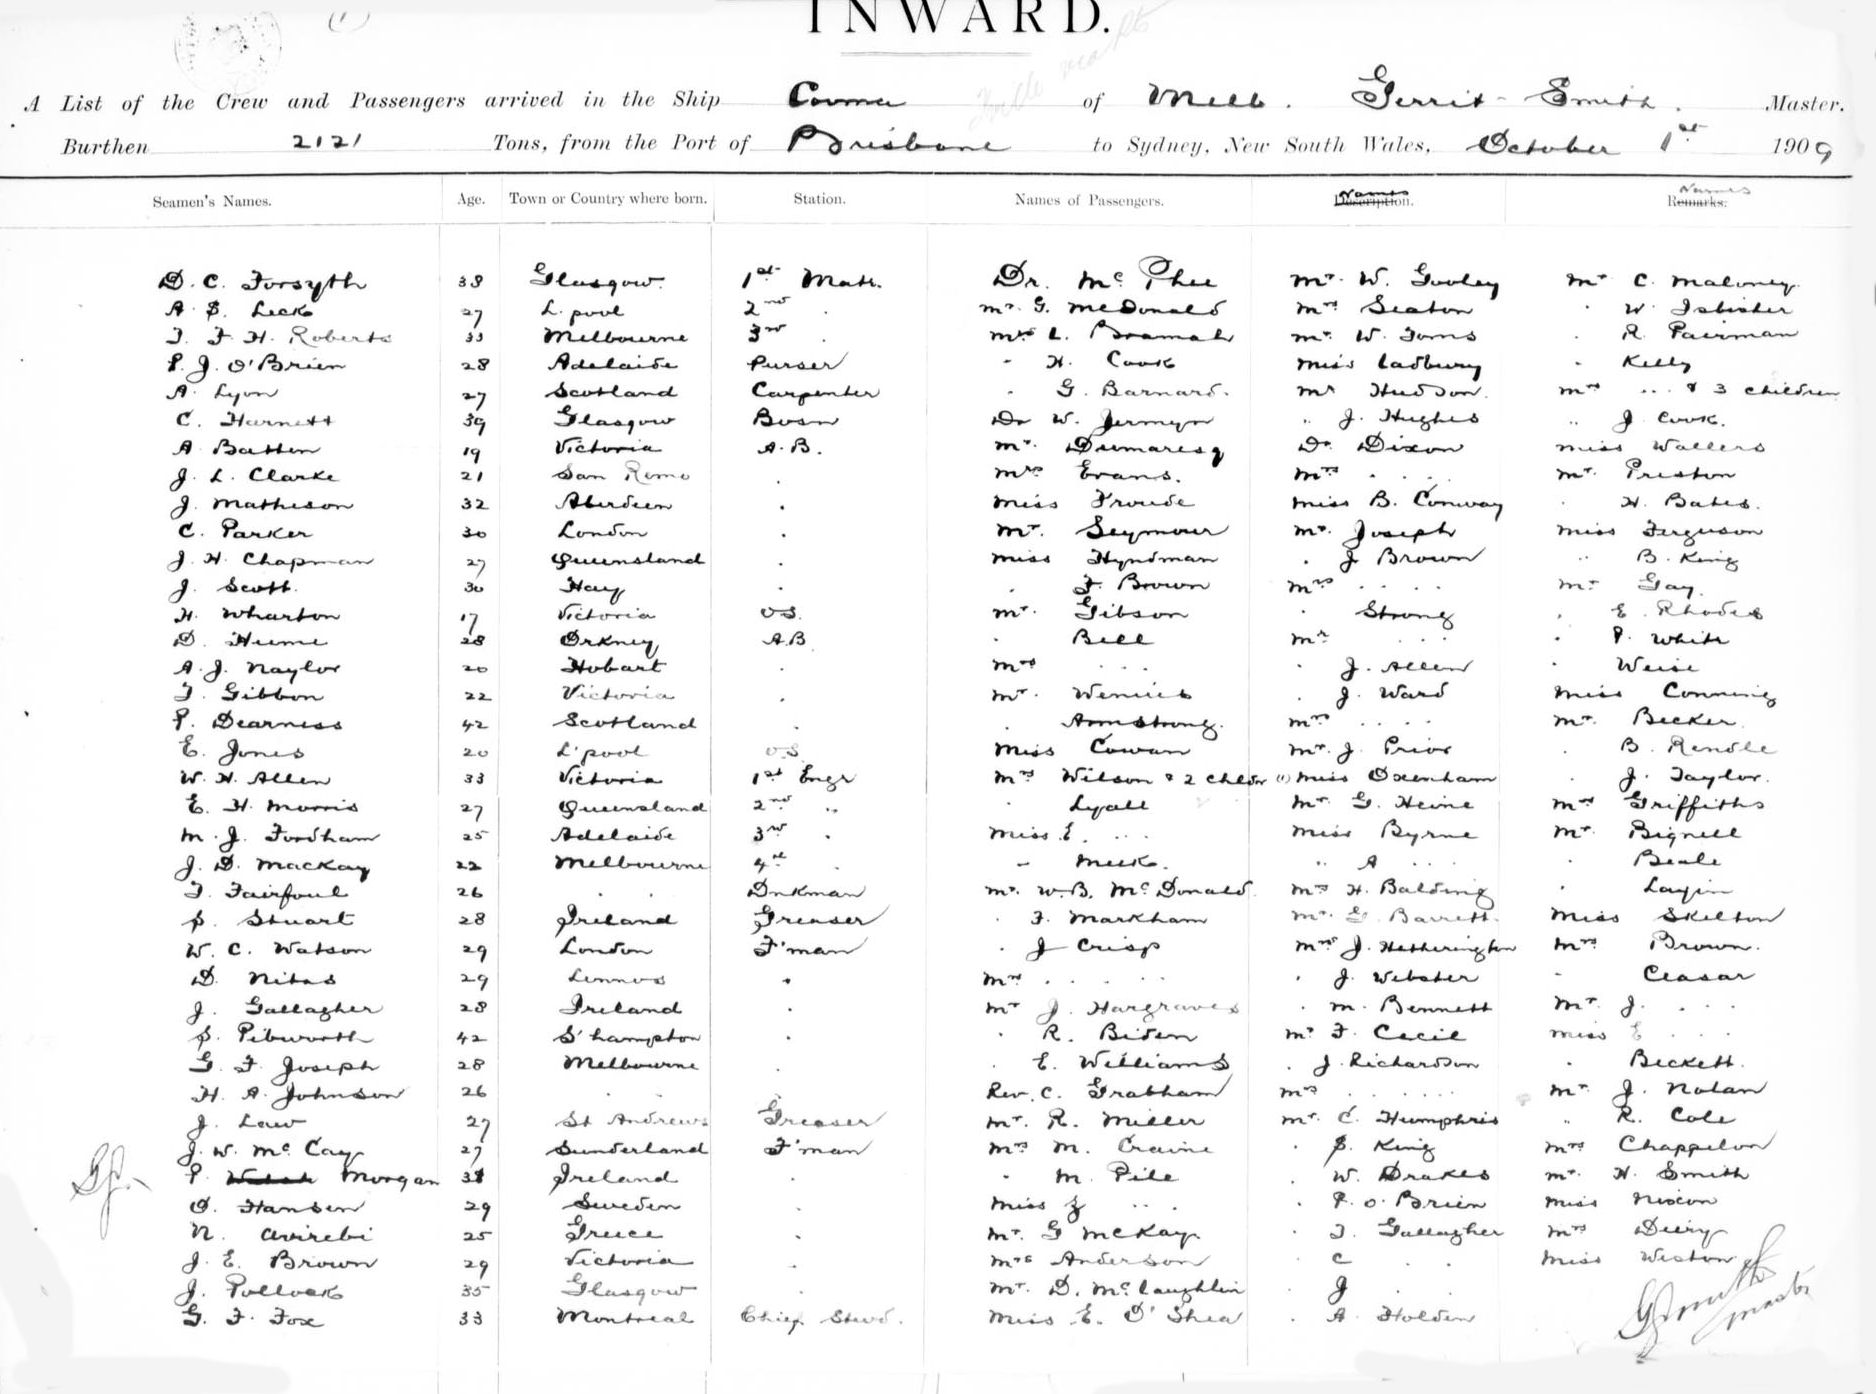 INWARD.
A List of the Crew and Passengers arrived in the Ship Cooma of Melb. Gerrit Smith. Master.
Burthen 2121 Tons, from the Port of Brisbane to Sydney, New South Wales, October 1st 1909
Seamen's Names. Age. Town or Country where born. Station. Names of Passengers. Names Description. Names Remarks.
D. C. Forsyth 38 Glasgow. 1st Mate. Dr. Mc Phee Mr. W. Gooley Mr C. Maloney.
A. S. Leck 27 L. pool 2nd . Mr. G. McDonald Mrs Seaton . W. Isbister
T. F. H. Roberts 33 Melbourne 3rd . Mrs L. Bramah Mr. W. Toms . R. Pairman
P. J. O'Brien 28 Adelaide Purser - H. Cook Miss Ladbury . Kelly
A. Lyon 27 Scotland Carpenter . G. Barnard. Mr Hudson. Mrs ... & 3 children
C. Harnett 39 Glasgow Bosn Dr W. Jermyn " J. Hughes " J. Cook.
A Batten 19 Victoria A.B. Mr. Dumaresq Dr. Dixon Miss Wallers
J. L. Clarke 21 San Remo . Mrs Evans. Mrs . . . . Mr. Preston
J. Matheson 32 Aberdeen . Miss Froude Miss B. Conway . H. Bates.
C. Parker 30 London . Mr. Seymour Mr. Joseph Miss Ferguson
J. H. Chapman 27 Queensland . Miss Hyndman . J Brown " B. King
J. Scott. 30 Hay . . F. Brown Mrs . . . . Mr Gay.
H. Wharton 17 Victoria O.S. Mr. Gibson . Strong . E. Rhodes
D. Hume 28 Orkney A.B. . Bell Mr . . . . P. White
A. J. Naylor 20 Hobart . Mrs . . . . J. Allen . Weise
T. Gibbon 22 Victoria . Mr. Wenius . J. Ward Miss Conning
P. Dearness 42 Scotland . . Armstrong. Mrs . . . . Mr. Becker.
E. Jones 20 L'pool O.S Miss Cowan Mr. J. Prior . B. Rendle
W. H. Allen 33 Victoria 1st Engr Mrs Wilson & 2 Childr (1) Miss Oxenham . J. Taylor.
E. H. Morris 27 Queensland 2nd " . Lyall Mr. G. Heine Mrs Griffiths
M. J. Fordham 25 Adelaide 3rd . Miss E. ... Miss Byrne Mr. Bignell
J. D. Mackay 22 Melbourne 4th . - Meek. " A ... . Beale
T. Fairfoul 26 . . Dnkman Mr. W.B. McDonald. Mrs H. Balding . Layin
S. Stuart 28 Ireland Greaser . F. Markham Mr. G. Barrett. Miss Skelton
W. C. Watson 29 London F'man . J Crisp Mrs J. Hetherington Mrs Brown.
D. Nitas 29 Lemnos . Mrs . . . . . . J. Webster - Ceasar
J. Gallagher 28 Ireland . Mr J. Hargraves . M. Bennett Mr. J. . . .
S. Pibworth 42 S'hampton . . R. Biden Mr F. Cecil Miss E . . .
G. F. Joseph 28 Melbourne . . E. Williams . J. Richardson . Beckett.
H. A. Johnson 26 . . Rev. C. Grabham Mrs . . . . . Mr. J. Nolan
J. Law 27 St Andrews Greaser Mr. R. Miller Mr. C. Humphris " R. Cole
J. W. McCay 27 Sunderland F'man Mrs M. Craine . S. King Mrs Chappelow
P. Walsh Morgan 38 Ireland . . M. Pile . W. Drakes Mr. H. Smith
O. Hansen 29 Sweden . Miss J ... . P. O. Brien Miss Nixon
N. Avirebi 25 Greece . Mr. G McKay. . T. Gallagher Mrs Deery
J. E. Brown 29 Victoria . Mrs Anderson . C . . Miss Weston
J. Pollock 35 Glasgow . Mr. D. McLaughlin . J . .
G. F. Fox 33 Montreal Chief Stewd. Miss E. O'Shea . A. Holden
G Smith
Master